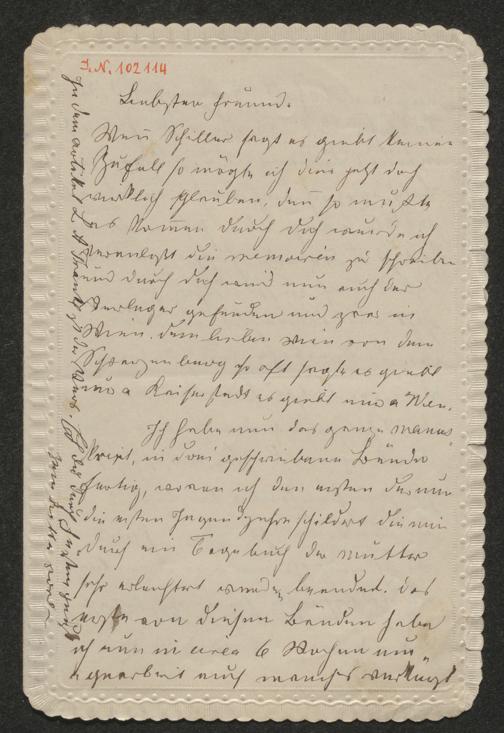 I.N. 102114
Liebster Freund.
Wenn Schiller sagt es giebt keinen
Zufall so möchte ich dies jetzt doch
wirklich glauben, denn so mußte
es kommen durch dich wurde ich
veranlaßt die memoiren zu schreiben
und durch dich wird nun auch der
Verleger gefunden und zwar in
Wien, dem lieben Wien von dem
Schwarzenberg so oft sagte es giebt
nur a Kaiserstadt es giebt nur a Wien.
Ich habe nun das ganze Manus-
kript, in drei geschriebene Bände
fertig, wovon ich den ersten der nur
die ersten Jugendjahre schildert die mir
durch ein Tagebuch der Mutter
sehr erleichtert wurde, beendet. das
erste von diesen Bänden habe
ich nun in circa 6 Wochen um
gearbeitet auch manches verkürzt
In dem artikel L. A. Frankl